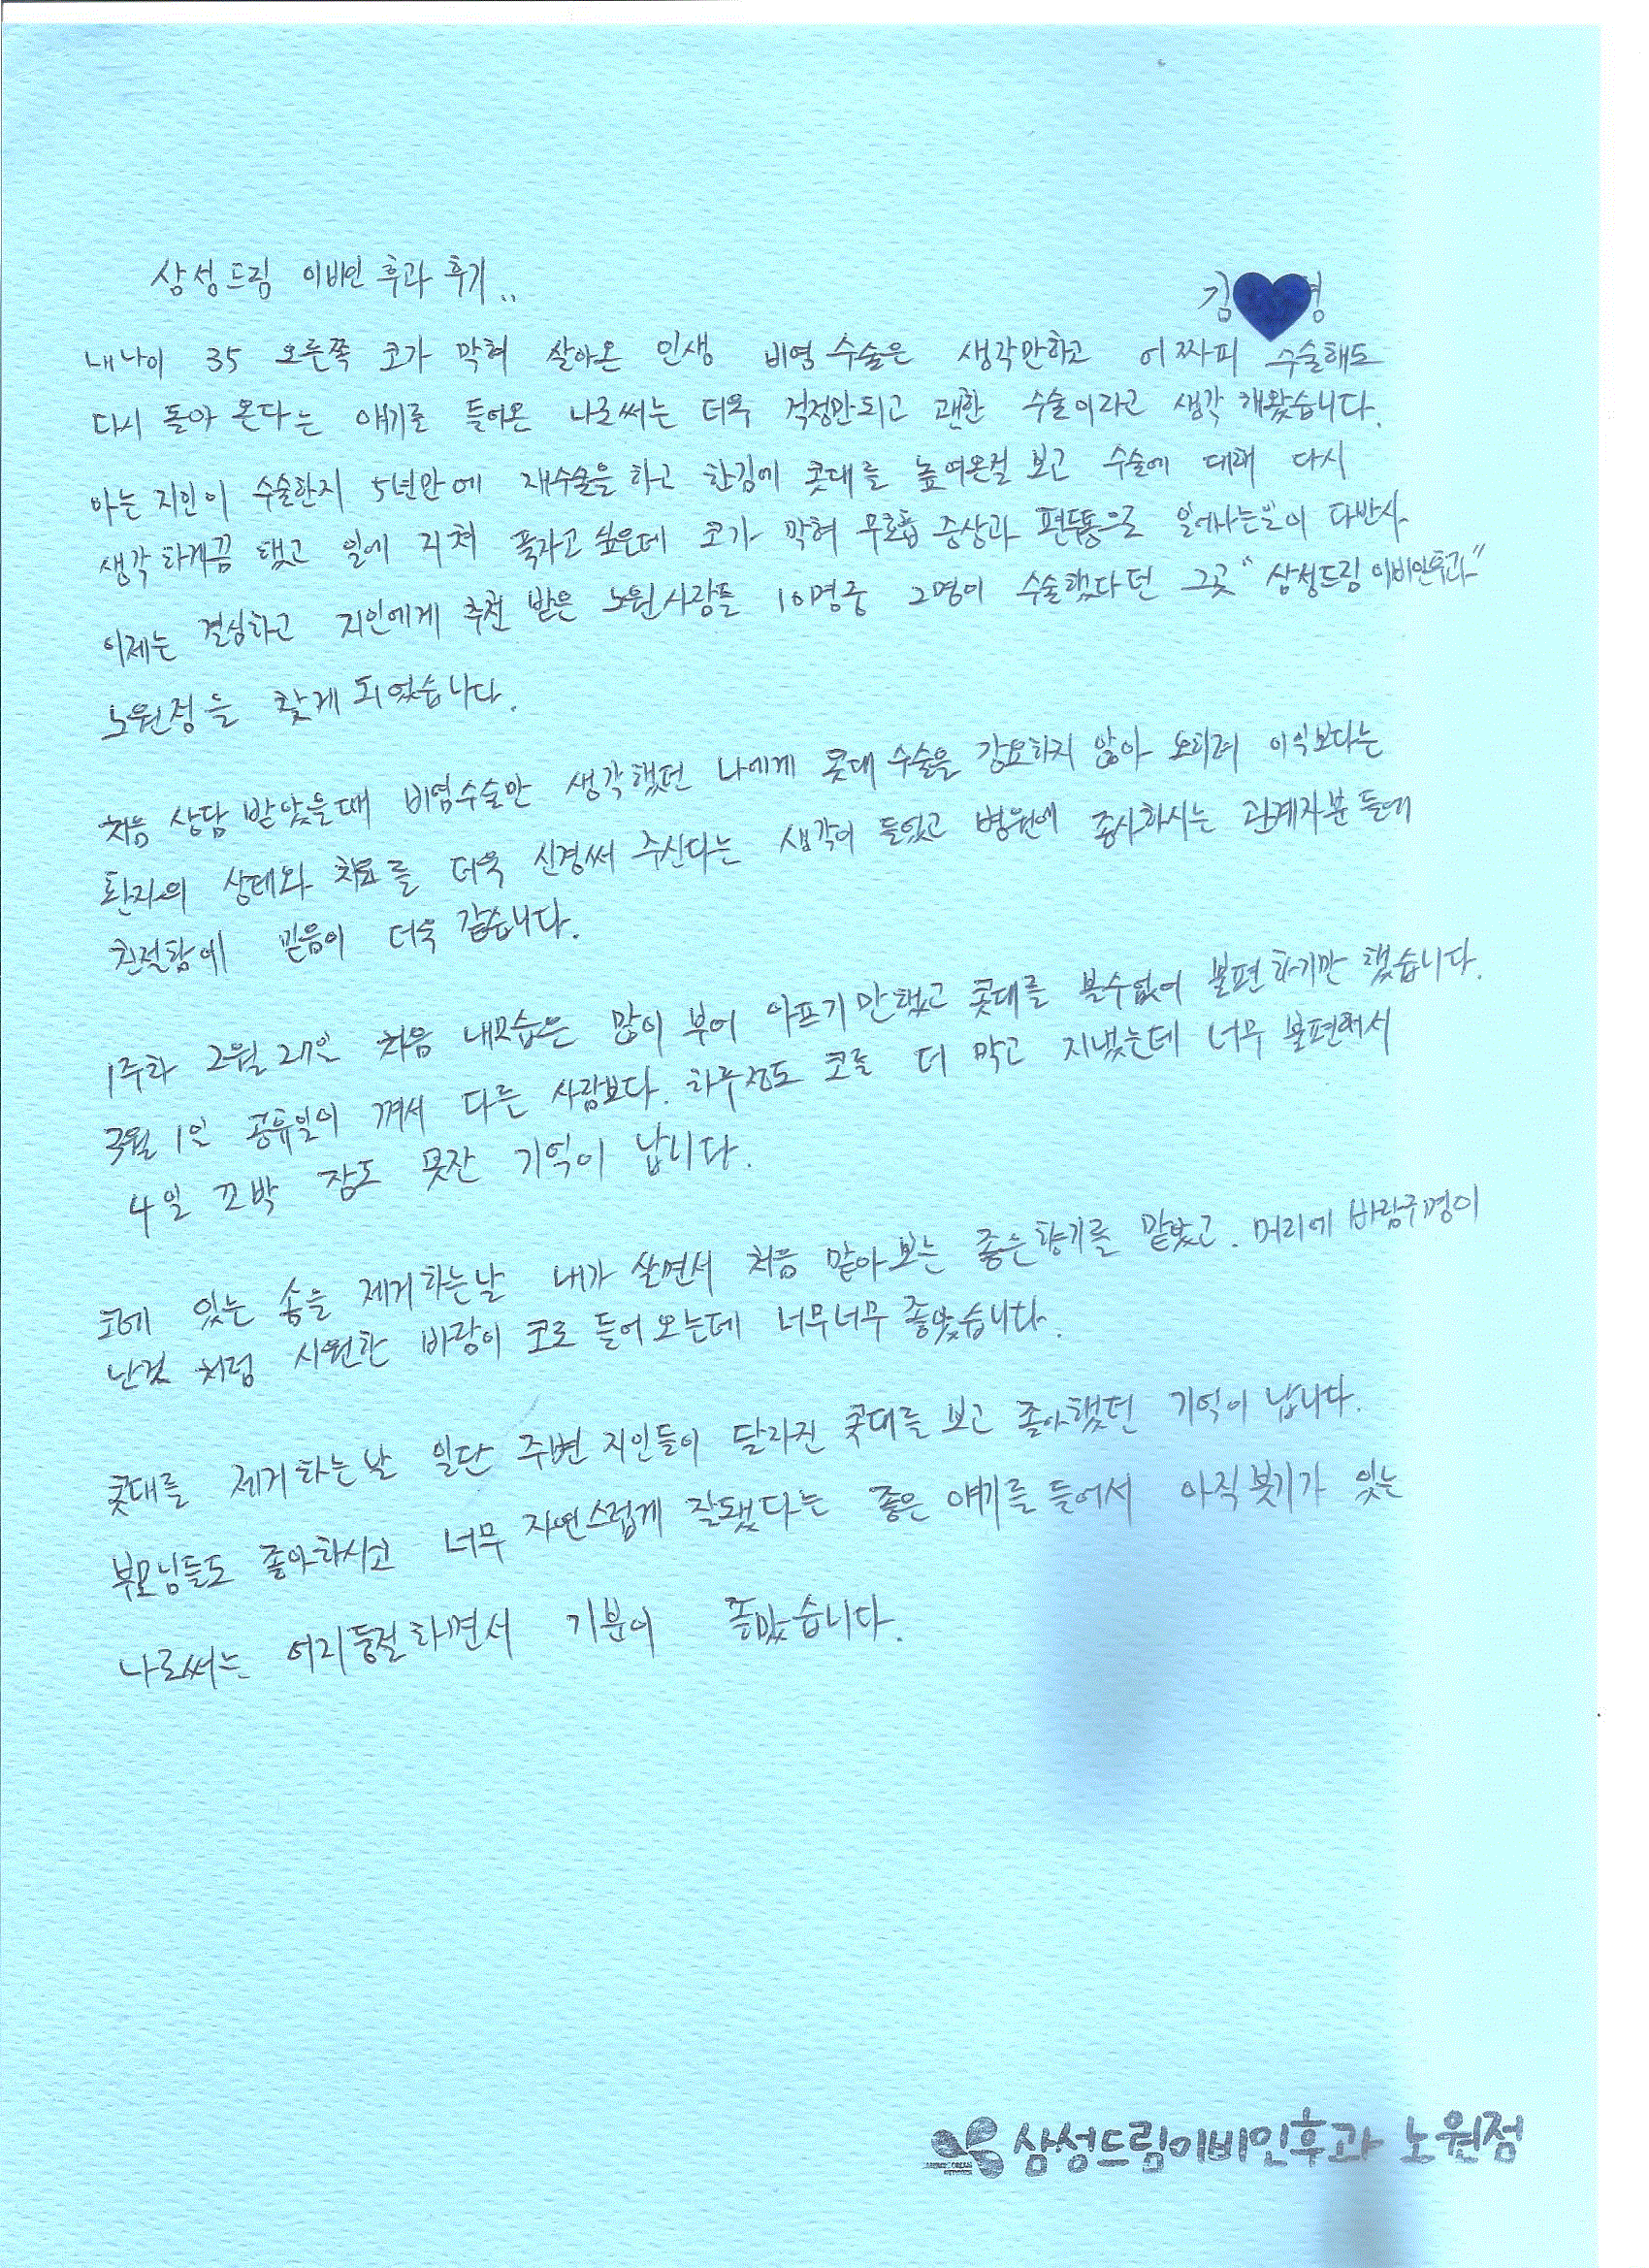 삼성드림 이비인 후과 후기..
김 영
내나이 35 오른쪽 코가 막혀 살아온 인생 비염 수술은 생각만하고 어짜피 수술해도
다시 돌아 온다는 얘기를 들어온 나로써는 더욱 걱정만되고 괜한 수술이라고 생각 해왔습니다.
아는 지인이 수술한지 5년만에 재수술을 하고 한김에 콧대를 높여온걸 보고 수술에 대해 다시
생각 하게끔 됐고 일에 지쳐 푹자고 싶은데 코가 막혀 무호흡 증상과 편두통으로 일어나는일이 다반사
이제는 결심하고 지인에게 추천 받은 노원사람들 10명중 2명이 수술했다던 그곳 "삼성드림이비인후과"
노원점을 찾게 되었습니다.
처음 상담 받았을때 비염수술만 생각했던 나에게 콧대 수술을 강요하지 않아 오히려 이익보다는
환자의 상태와 치료를 더욱 신경써 주신다는 생각이 들었고 병원에 종사하시는 관계자분들에
친절함에 믿음이 더욱 갔습니다.
1주차 2월 27일 처음 내모습은 많이 부어 아프기만했고 콧대를 볼수없어 불편하기만 했습니다.
3월 1일 공휴일이 껴서 다른 사람보다. 하루정도 코를 더 막고 지냈는데 너무 불편해서
4일 꼬박 잠도 못잔 기억이 납니다.
코에 있는 솜을 제거하는날 내가 살면서 처음 맡아 보는 좋은향기를 맡았고. 머리에 바람구멍이
난것 처럼 시원한 바람이 코로 들어 오는데 너무너무 좋았습니다.
콧대를 제거하는날 일단 주변 지인들이 달라진 콧대를 보고 좋아했던 기억이 납니다.
부모님들도 좋아하시고 너무 자연스럽게 잘됐다는 좋은 얘기를 들어서 아직 붓기가 있는
나로써는 어리둥절하면서 기분이 좋았습니다.
삼성드림이비인후과 노원점